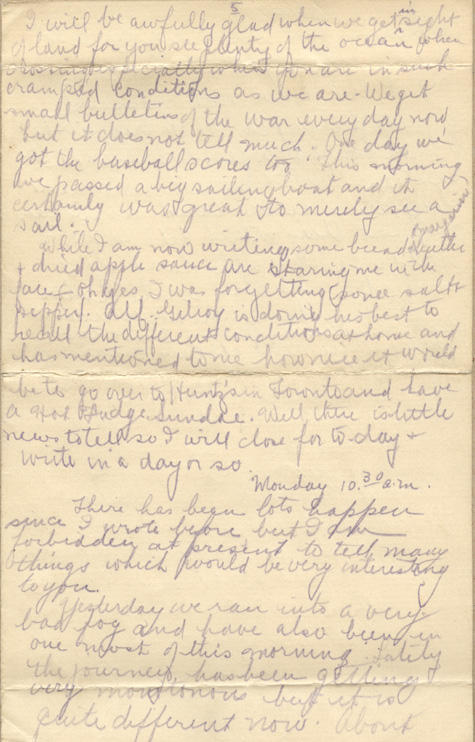 5
I will be awfully glad when we get in sight
of land for you see plenty of the ocean when
crossing especially when you are in such
cramped conditions as we are. We get
small bulletins of the war every day now
but it does not tell much. One day we
got the baseball scores too. This morning
we passed a big sailing boat and it
certainly was great to merely see a
sail.
While I am now writing some bread & butter
& dried apple sauce are staring me in the
face & oh yes I was forgetting some salt &
pepper. Alf. Gilroy is doing his best to
recall the different conditions at home and
has mentioned to me how nice it would
be to go over to Hunt's in Toronto and have
a Hot Fudge Sundae. Well there is little
news to tell so I will close for to-day &
write in a day or so.
Monday 10.30 a.m.
There has been lots happen
since I wrote before but I am
forbidden at present to tell many
things which would be very interesting
to you.
Yesterday we ran into a very
bad fog and have also been in
one most of this morning. Lately
the journey has been getting
very monotonous but it is
quite different now. About